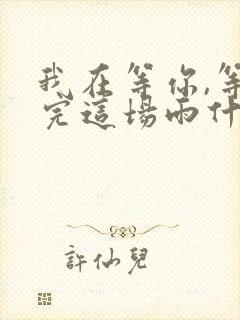 我在等你,等
完這場雨什
許仙兒